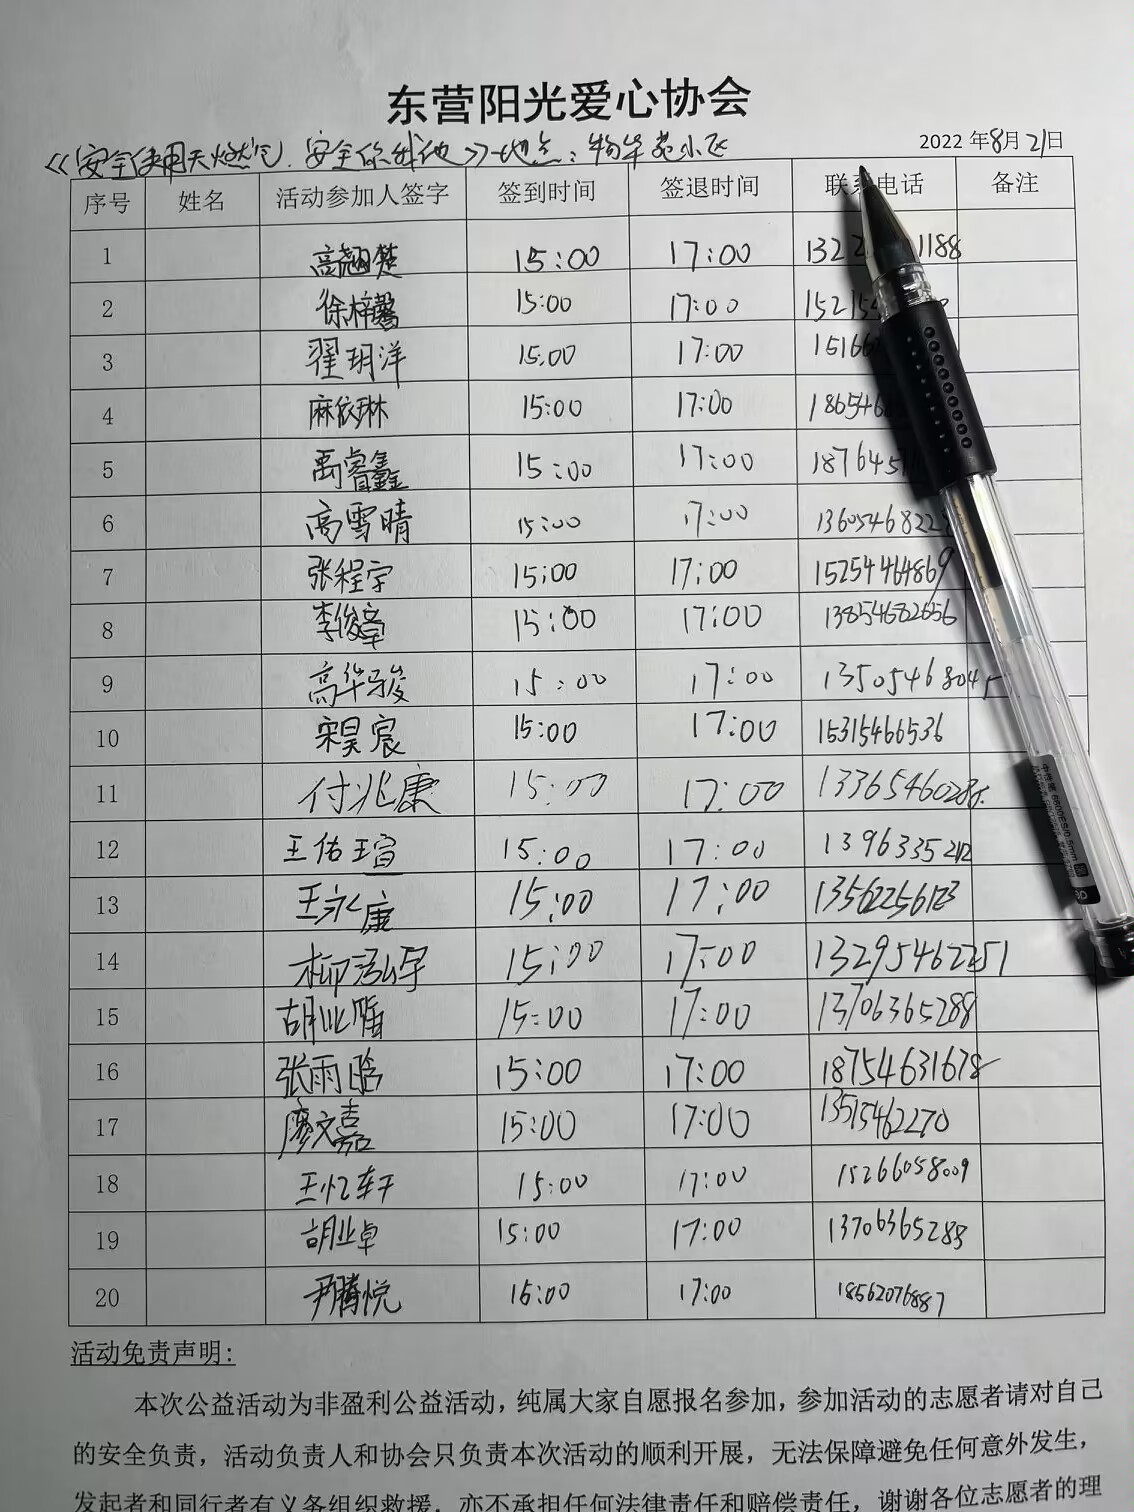 东营阳光爱心协会
2022 年8月21日
《安全使用天燃气.安全你我他》 地点:物华苑小区
序号 姓名 活动参加人签字 签到时间 签退时间 联系电话 备注
1 15:00 17:00 1188
2 徐梓馨 15:00 17:00
3 翟玥洋 15:00 17:00
4 麻依琳 15:00 17:00
5 禹睿鑫 15:00 17:00
6 高雪晴 15:00 17:00
7 张程宇 15:00 17:00 15254464869
8 李俊章 15:00 17:00 13854682656
9 高华骏 15:00 17:00 13505468045
10 宋昊宸 15:00 17:00 15315466536
11 付兆康 15:00 17:00
12 王佑瑄 15:00 17:00
13 王永康 15:00 17:00
14 柳泓宇 15:00 17:00 13295462251
15 15:00 17:00 13706365288
16 张雨晗 15:00 17:00 18754631678
17 廖文嘉 15:00 17:00 13515462270
18 王忆轩 15:00 17:00 15266058009
19 胡业卓 15:00 17:00 13706365288
20 尹腾悦 15:00 17:00 18562076887
活动免责声明:
本次公益活动为非盈利公益活动,纯属大家自愿报名参加,参加活动的志愿者请对自己
的安全负责,活动负责人和协会只负责本次活动的顺利开展,无法保障避免任何意外发生,
发起者和同行者有义务组织救援,亦不承担任何法律责任和赔偿责任,谢谢各位志愿者的理